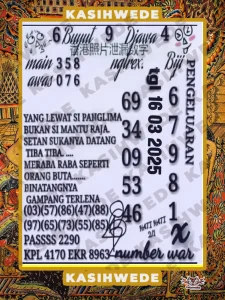 KASIHWEDE
6 Buyut 9 Djawa 4
香港照片泄漏数字
main 358 ngirex. Biji
awas 076
PENGELUARAN
tgl 16 03 2025
69 6
34 7
09 9
53 8
13 9
54 8
46 1
YANG LEWAT SI PANGLIMA
BUKAN SI MANTU RAJA.
SETAN SUKANYA DATANG
TIBA TIBA. ....
MERABA RABA SEPERTI
ORANG BUTA.......
BINATANGNYA
GAMPANG TERLENA
(03)(57)(86)(47)(88)
(97)(65)(73)(55)(85)
PASSSS 2290
KPL 4170 EKR 8963
HATI HATI
x
number war
KASIHWEDE